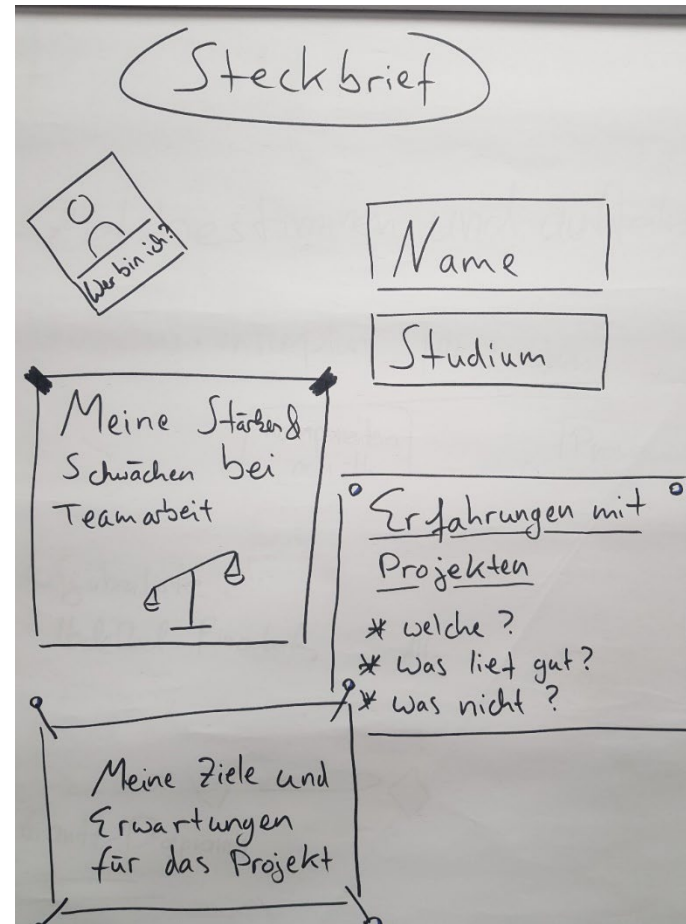 Steckbrief
Wer bin ich?
Name
Studium
Meine Stärken &
Schwächen bei
Teamarbeit
Erfahrungen mit
Projekten
* welche?
* was lief gut?
* was nicht?
Meine Ziele und
Erwartungen
für das Projekt